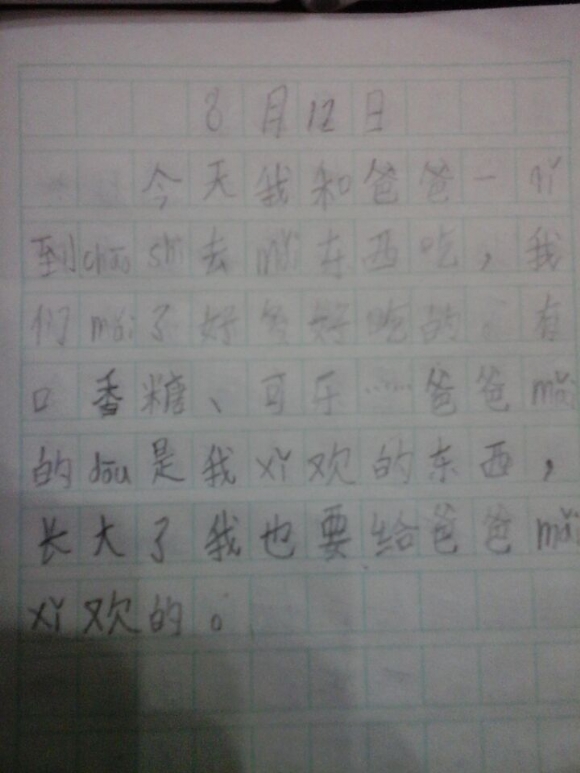 8月12日
今天我和爸爸一qǐ
到chāo shì去mǎi东西吃，我
们mǎi了好多好吃的。有
口香糖、可乐……爸爸mǎi
的dōu是我xǐ欢的东西，
长大了我也要给爸爸mǎi
xǐ欢的。